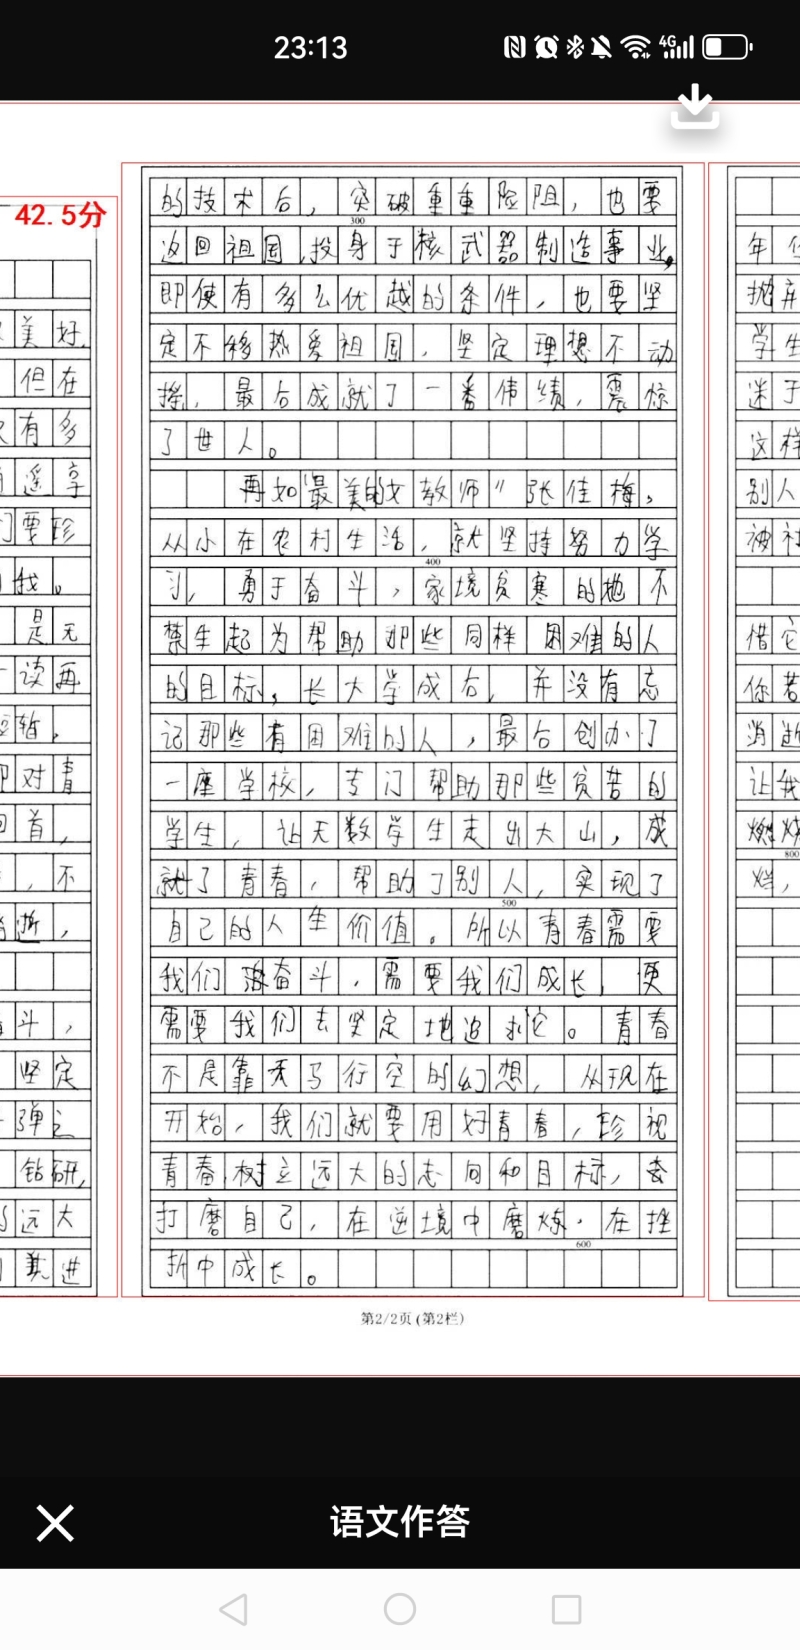 23:13
4G
42.5分
美好,
但在
有多
遥享
们要珍
我。
是无
读再
短暂,
即对青
回首,
,不
消逝,
斗,
坚定
弹之
钻研,
远大
美进
的技术后,突破重重险阻,也要
300
返回祖国,投身于核武器制造事业,
即使有多么优越的条件,也要坚
定不移热爱祖国,坚定理想不动
摇,最后成就了一番伟绩,震惊
了世人。
再如“最美的女教师”张佳梅,
从小在农村生活,就坚持努力学
400
习,勇于奋斗,家境贫寒的她不
禁生起为帮助那些同样困难的人
的目标,长大学成后,并没有忘
记那些有困难的人,最后创办了
一座学校,专门帮助那些贫苦的
学生,让无数学生走出大山,成
就了青春,帮助了别人,实现了
500
自己的人生价值。所以青春需要
我们奋斗,需要我们成长,更
需要我们去坚定地追求它。青春
不是靠天马行空的幻想,从现在
开始,我们就要用好青春,珍视
青春,树立远大的志向和目标,去
打磨自己,在逆境中磨炼,在挫
600
折中成长。
第2/2页 (第2栏)
年
抛弃
学生
迷于
这样
别人
被社
惜它
你若
消逝
让我
燃烧
800
烂,
语文作答